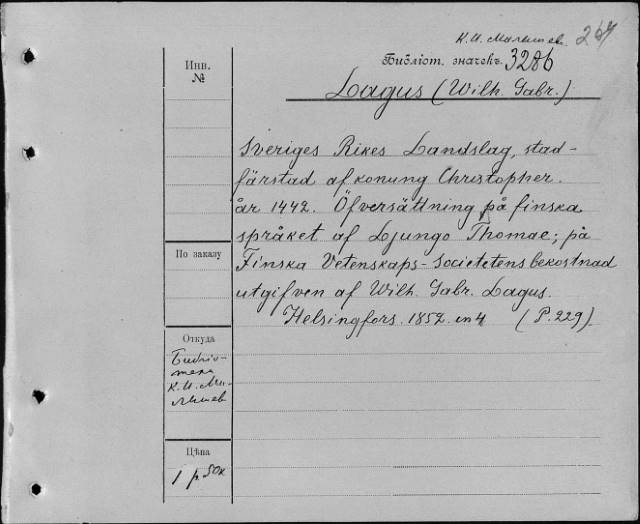 К. И. Малышев. 267
Инв.
№
Библіот. значекъ. 3286
Lagus (Wilh. Gabr.)
Sveriges Rikes Landslag, stad-
färstad af konung Christopher.
år 1442. Öfversättning på finska
språket af Ljungo Thomae; på
Finska Vetenskaps-Societetens bekostnad
utgifven af Wilh. Gabr. Lagus.
Helsingfors. 1852. in 4 (P. 229).
По заказу
Откуда
Библіо-
тека
К. И. Ма-
лышев
Цѣна
1 р. 50к